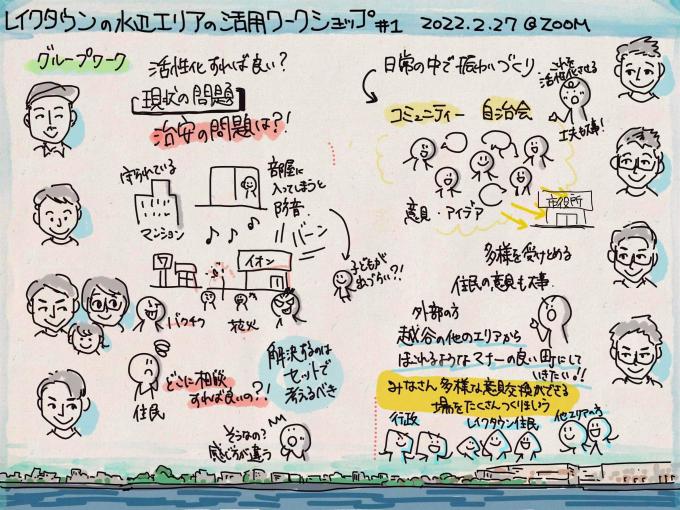 レイクタウンの水辺エリアの活用ワークショップ #1 2022.2.27 @ZOOM
グループワーク
活性化すれば良い?
現状の問題
治安の問題は?!
守られている
マンション
部屋に
入ってしまうと
防音
バーン
イオン
子どもが
バクチク
花火
住民
どこに相談
すれば良いの?!
解決するのは
セットで
考えるべき
そうなの?
感じ方が違う
日常の中で賑わいづくり
これを
活性化させる
工夫も大事!
コミュニティー 自治会
意見・アイデア
市役所
多様を受けとめる
住民の意見も大事
外部の方
越谷の他のエリアから
ほこれるようなマナーの良い町にして
いきたい!!
みなさん多様な意見交換ができる
場をたくさんつくりましょう
行政
レイクタウン住民
他エリアの方